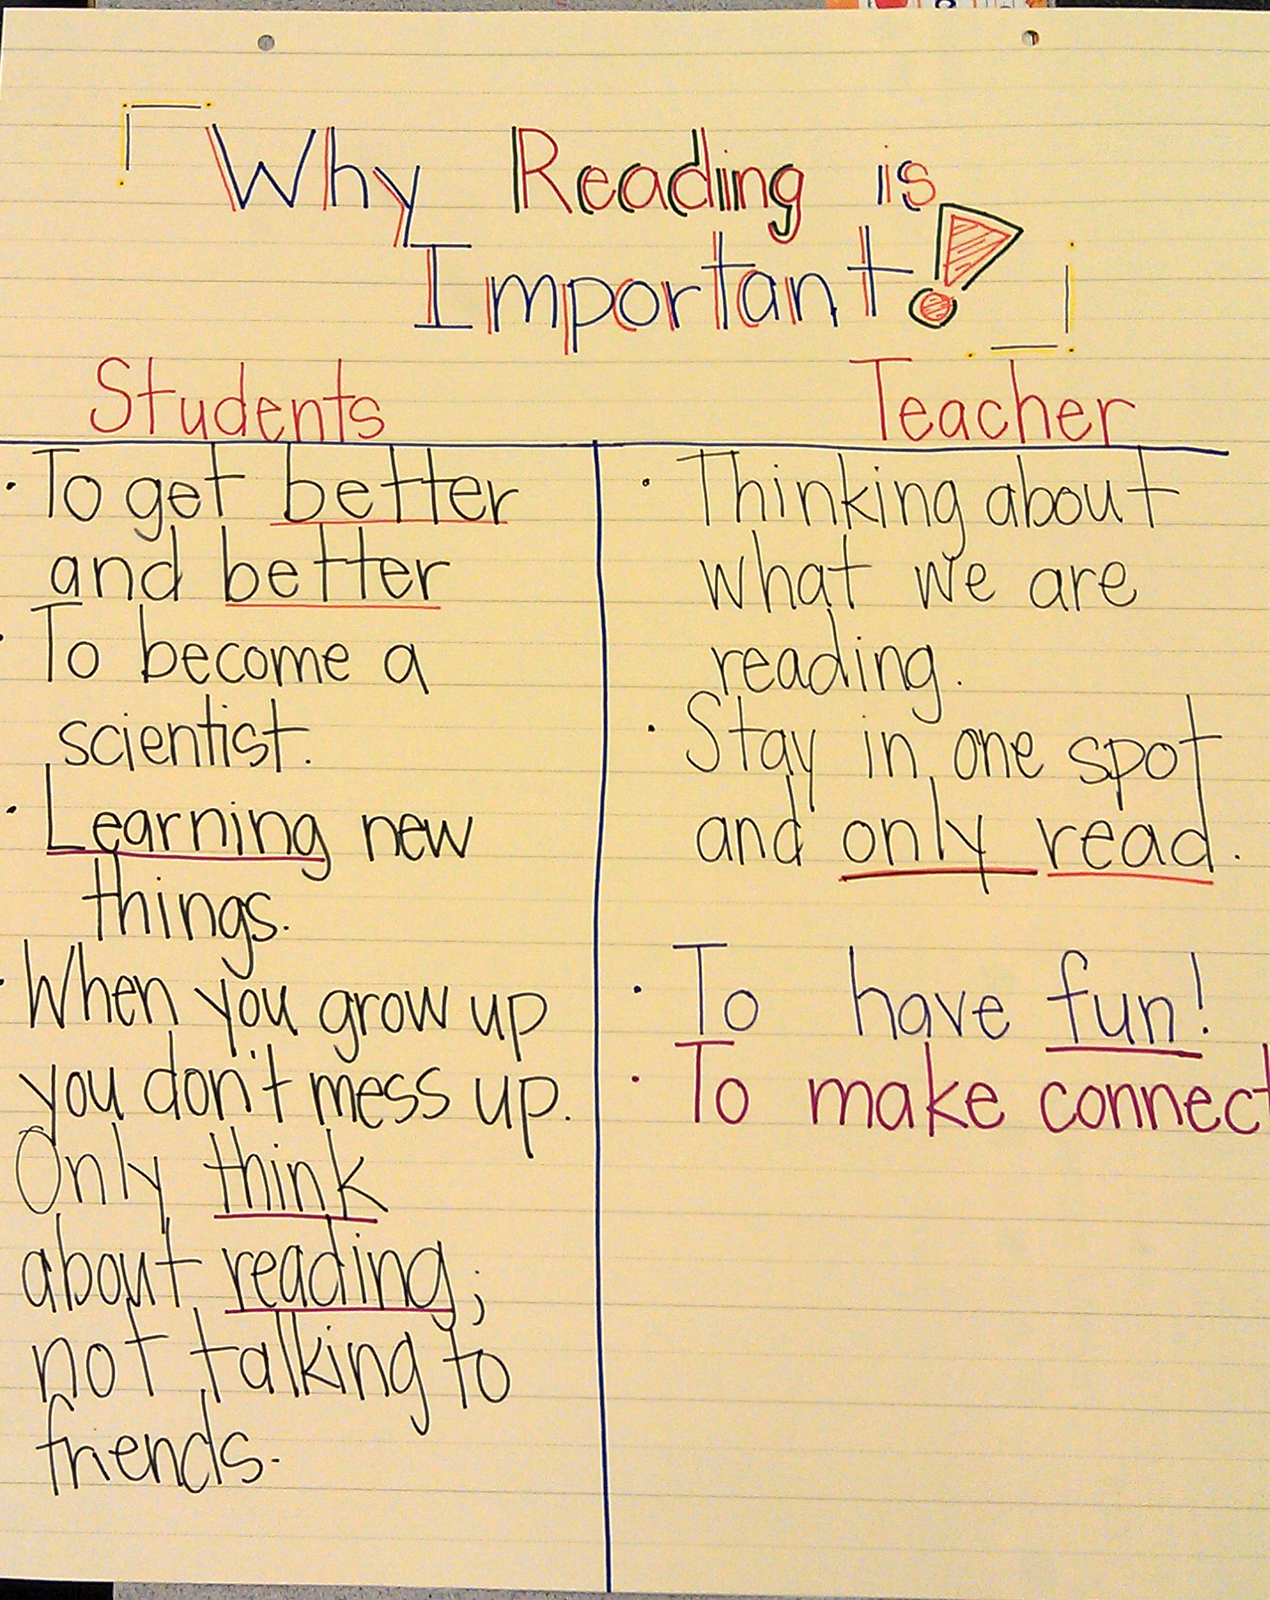 Why Reading is
Important!
Students
To get better
and better
To become a
scientist.
Learning new
things.
When you grow up
you don't mess up.
Only think
about reading;
not talking to
friends.
Teacher
Thinking about
what we are
reading.
Stay in one spot
and only read.
To have fun!
To make connect